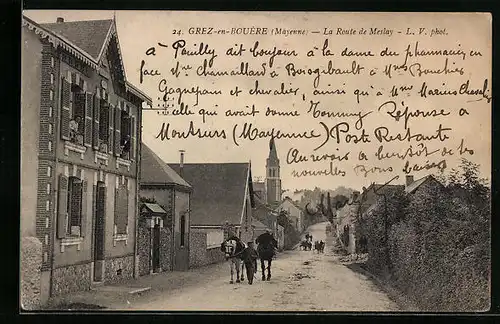 24. GREZ-en-BOUÈRE (Mayenne) — La Route de Meslay - L. V. phot.
à Pouilly dit bonjour à la dame du pharmacien en
face Mme Chamaillard à Boisgibault à Mmes Bouchier
Gagnepain et chevalier, ainsi qu'à Mme Marius Chevalier
celle qui avait donné Tommy Réponse à
Montsurs (Mayenne) Poste Restante
Au revoir à bientôt de
nouvelles Bons baisers